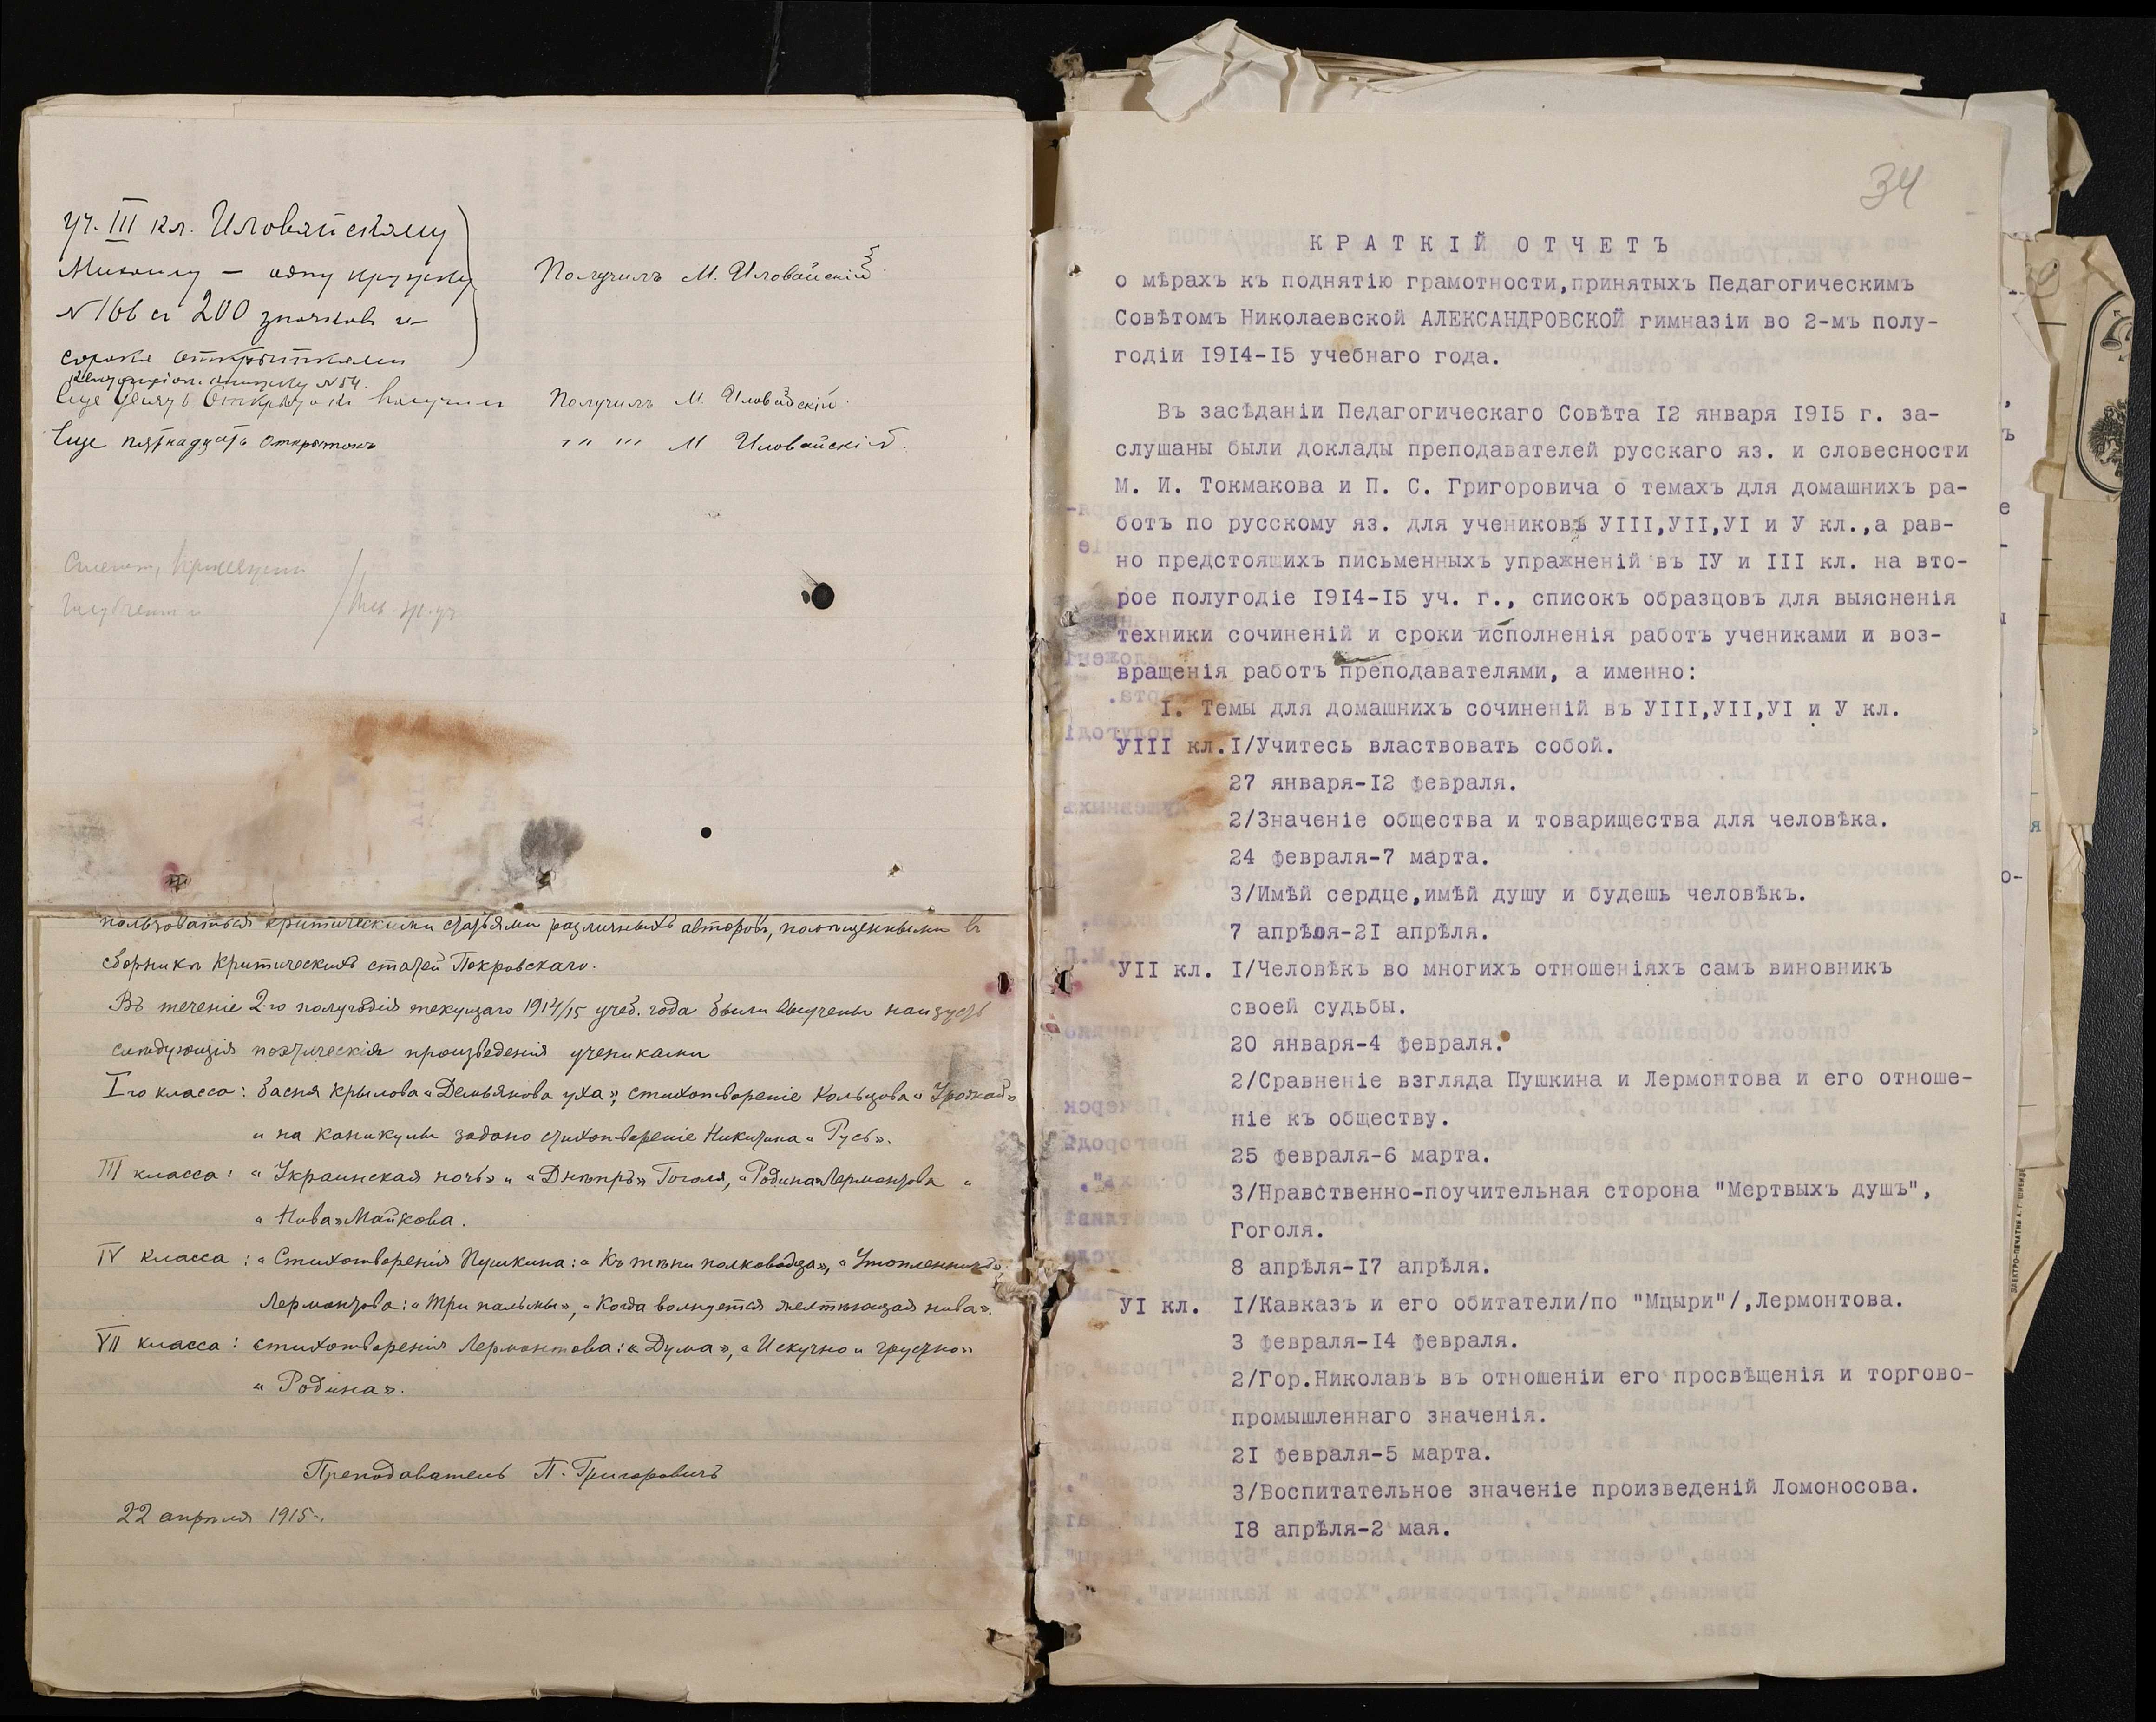 уч. III кл. Иловайскому
Михаилу — одну кружку
№ 166 съ 200 значковъ и
сорока открытками
Получилъ М. Иловайскій
кружку №54.
Еще девять открытокъ получилъ
Получилъ М. Иловайскій
Еще пятнадцать открытокъ
" " " " М Иловайскій.
пользоваться критическими статьями различныхъ авторовъ, помѣщенными въ
сборникѣ критическихъ статей Покровскаго.
Въ теченіе 2-го полугодія текущаго 1914/15 учеб. года были выучены наизусть
слѣдующія поэтическія произведенія учениками
I-го класса: басня Крылова «Демьянова уха», стихотвореніе Кольцова «Урожай»
и на каникулы задано стихотвореніе Никитина «Русь».
III класса: «Украинская ночь» и «Днѣпръ» Гоголя, «Родина» Лермонтова и
«Нива» Майкова.
IV класса: «Стихотворенія Пушкина: «Къ тѣни полководца», «Утопленникъ»,
Лермонтова: «Три пальмы», «Когда волнуется желтѣющая нива».
VII класса: стихотворенія Лермонтова: «Дума», «И скучно и грустно»
«Родина».
Преподаватель П. Григоровичъ
22 апрѣля 1915 г.
34
КРАТКІЙ ОТЧЕТЪ
о мѣрахъ къ поднятію грамотности,принятыхъ Педагогическимъ
Совѣтомъ Николаевской АЛЕКСАНДРОВСКОЙ гимназіи во 2-мъ полу-
годіи I9I4-I5 учебнаго года.
Въ засѣданіи Педагогическаго Совѣта I2 января I9I5 г. за-
слушаны были доклады преподавателей русскаго яз. и словесности
М. И. Токмакова и П. С. Григоровича о темахъ для домашнихъ ра-
ботъ по русскому яз. для учениковъ УIII,УII,УI и У кл.,а рав-
но предстоящихъ письменныхъ упражненій въ IУ и III кл. на вто-
рое полугодіе I9I4-I5 уч. г., списокъ образцовъ для выясненія
техники сочиненій и сроки исполненія работъ учениками и воз-
вращенія работъ преподавателями, а именно:
I. Темы для домашнихъ сочиненій въ УIII,УII,УI и У кл.
УIII кл.I/Учитесь властвовать собой.
27 января-I2 февраля.
2/Значеніе общества и товарищества для человѣка.
24 февраля-7 марта.
3/Имѣй сердце,имѣй душу и будешь человѣкъ.
7 апрѣля-2I апрѣля.
УII кл. I/Человѣкъ во многихъ отношеніяхъ самъ виновникъ
своей судьбы.
20 января-4 февраля.
2/Сравненіе взгляда Пушкина и Лермонтова и его отноше-
ніе къ обществу.
25 февраля-6 марта.
3/Нравственно-поучительная сторона "Мертвыхъ душъ",
Гоголя.
8 апрѣля-I7 апрѣля.
УI кл. I/Кавказъ и его обитатели/по "Мцыри"/,Лермонтова.
3 февраля-I4 февраля.
2/Гор.Николавъ въ отношеніи его просвѣщенія и торгово-
промышленнаго значенія.
2I февраля-5 марта.
3/Воспитательное значеніе произведеній Ломоносова.
I8 апрѣля-2 мая.